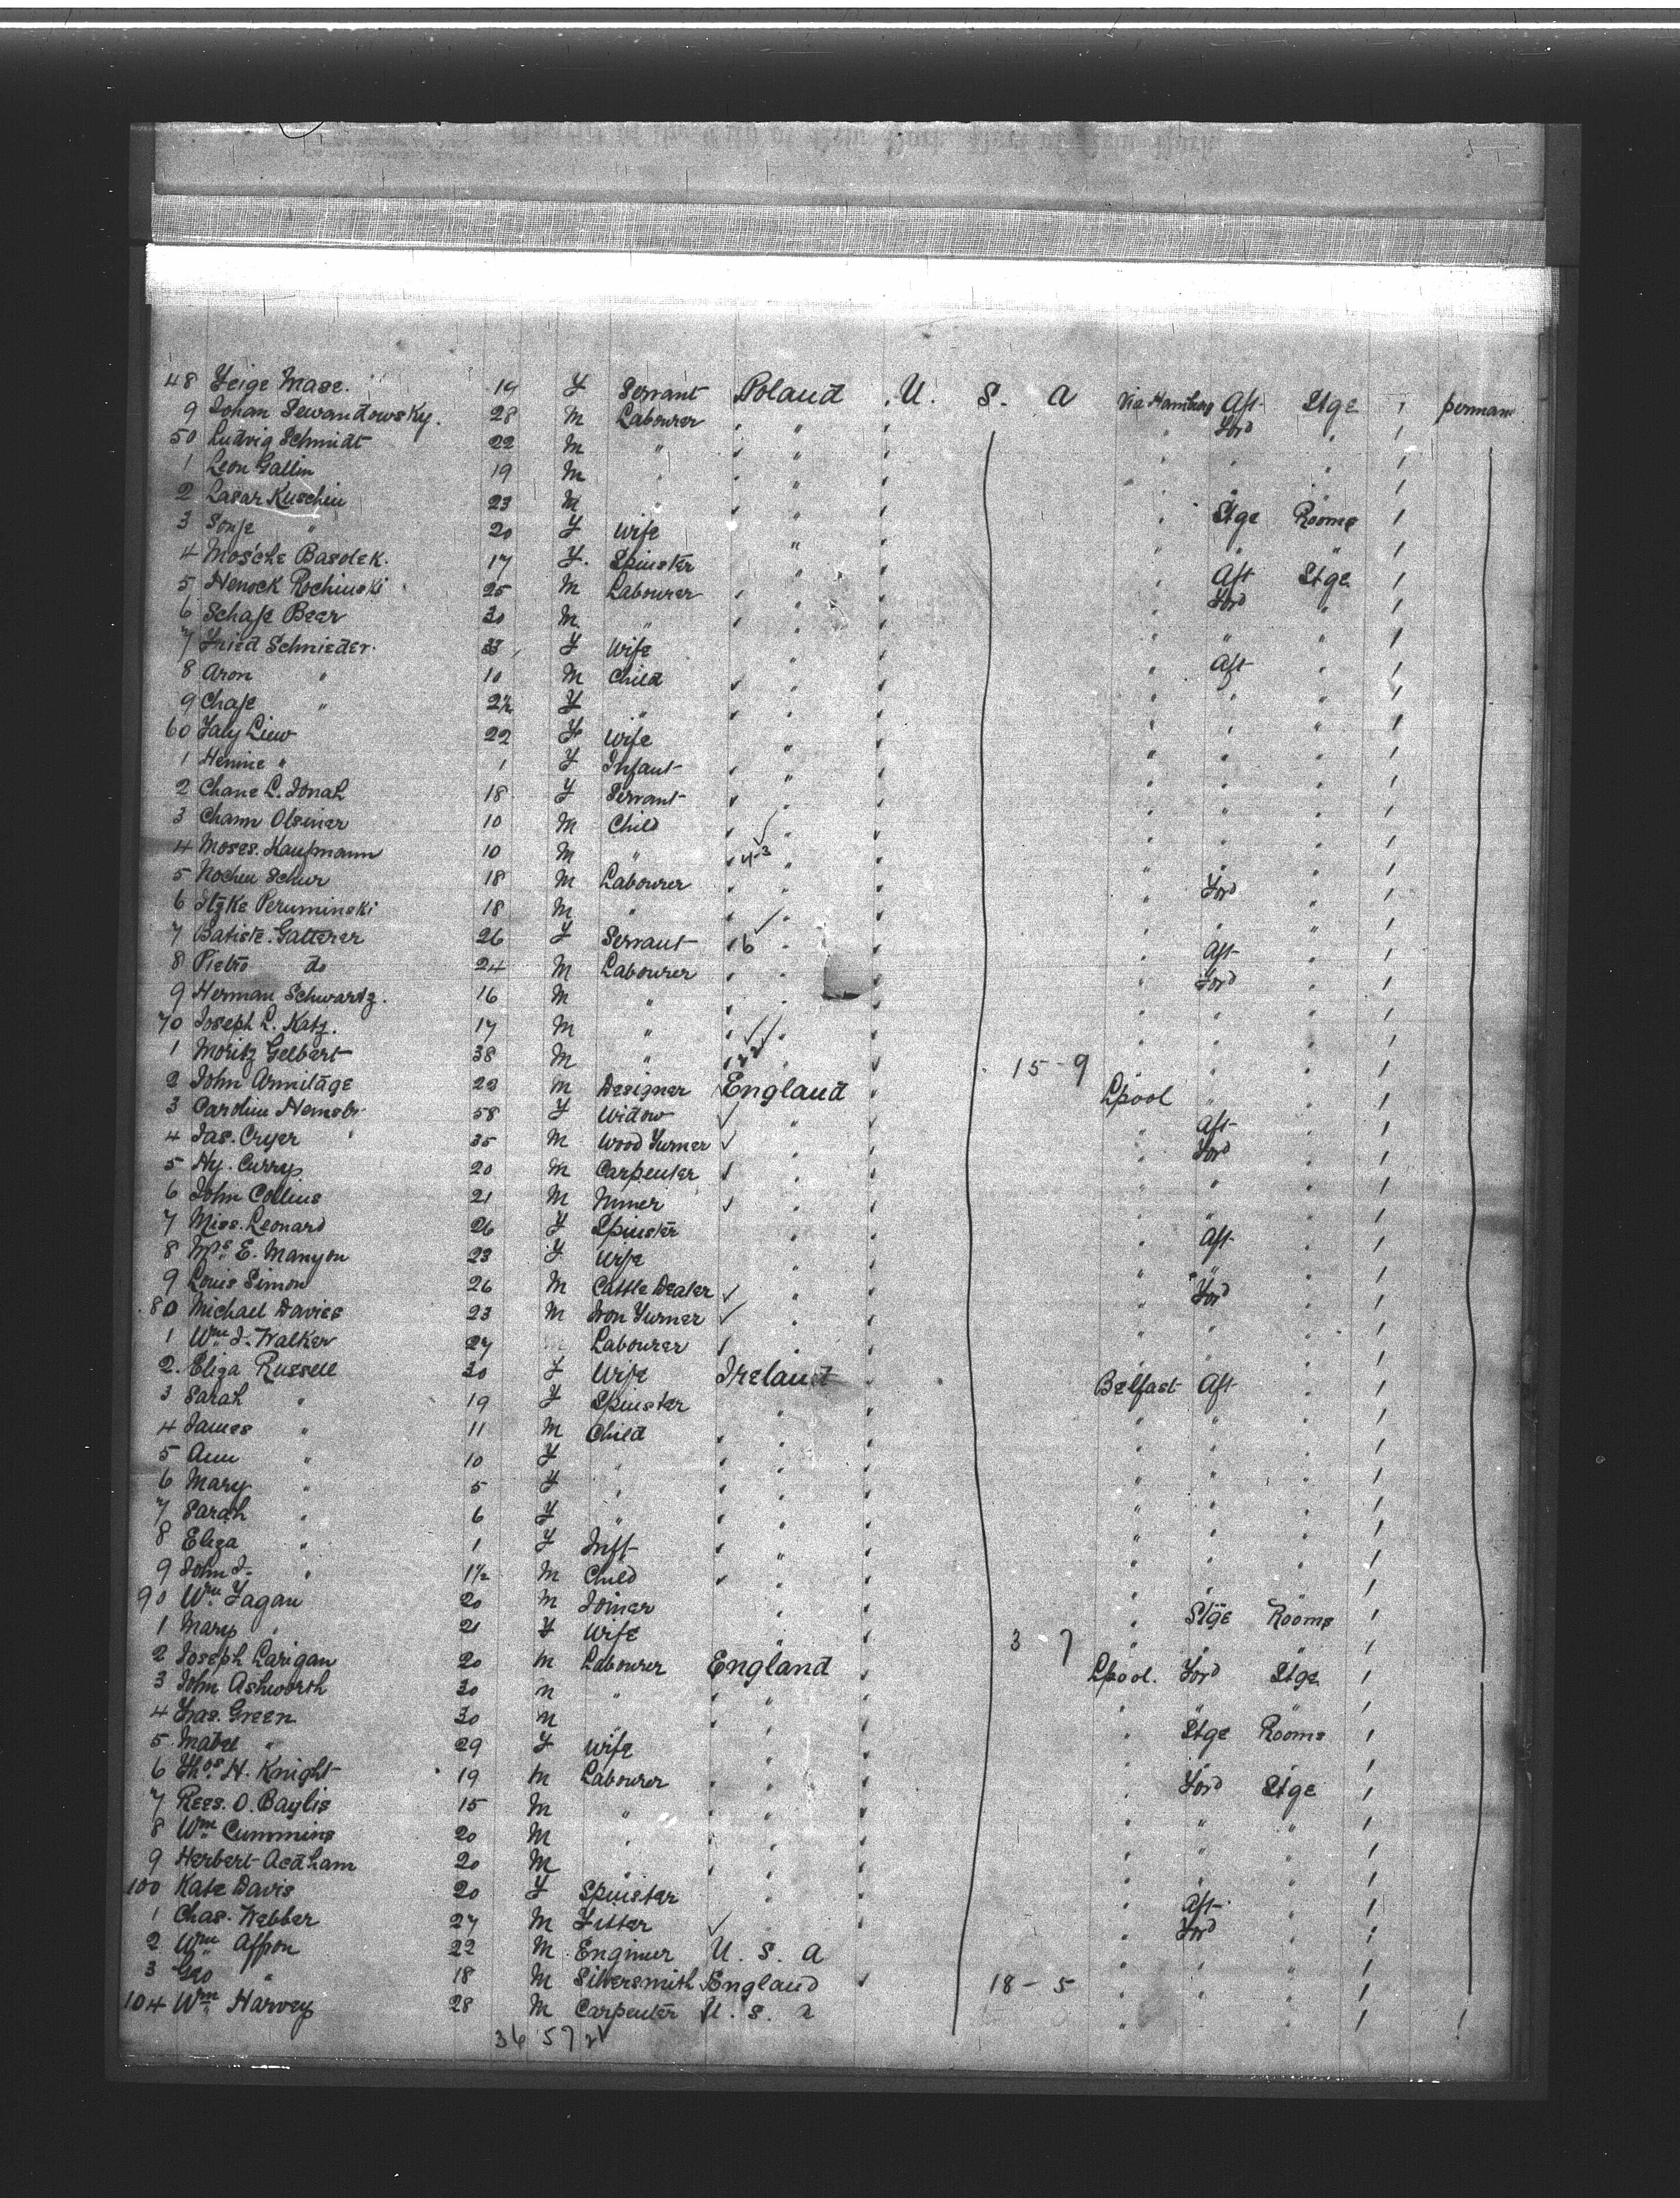 48 Feige Mase. 19 F Servant Poland U. S. A Via Hamburg Aft Stge 1 perman
9 Johan Sewandowsky. 28 M Labourer " " Ford " 1
50 Ludvig Schmidt 22 M " " " " " 1
1 Leon Gallin 19 M " " " " " 1
2 Lasar Kuschin 23 M " " " Stge Rooms 1
3 Sonje " 20 F Wife " " " " 1
4 Mosche Basolek. 17 F. Spinster " " Aft Stge 1
5 Henock Rochinski 25 M Labourer " " Ford " 1
6 Schaje Beer 30 M " " " " " 1
7 Fried Schnieder. 33 F Wife " " Aft " 1
8 Aron " 10 M Child " " " " 1
9 Chaje " 2½ F " " " " " 1
60 Faly Liew 22 F Wife " " " " 1
1 Henine " 1 F Infant " " " " 1
2 Chane L. Jonah 18 F Servant " " " " 1
3 Chann Olsener 10 M Child " " " " 1
4 Moses. Kaufmann 10 M " 4-3 " " " " 1
5 Nochen Schur 18 M Labourer " " Ford " 1
6 Itzke Peruminski 18 M " " " " " 1
7 Batiste. Gatterer 26 F Servant 16 " " Aft " 1
8 Pietro do 24 M Labourer " " Ford " 1
9 Herman Schwartz. 16 M " " " " " 1
70 Joseph L. Katz. 17 M " " " " " 1
1 Moritz Gelbert 38 M " " 15-9 " " " 1
2 John Armitage 22 M Designer England Lpool " " 1
3 Caroline 58 F Widow " " Aft " 1
4 Jas. Cryer 35 M Wood Turner " " Ford " 1
5 Hy. Curry 20 M Carpenter " " " " 1
6 John Collins 21 M Miner " " " " 1
7 Miss. Leonard 26 F Spinster " " Aft " 1
8 Mrs E. Manyon 23 F Wife " " " " 1
9 Louis Simon 26 M Cattle Dealer " " Ford " 1
80 Michael Davies 23 M Iron Turner " " " " 1
1 Wm J. Walker 27 M Labourer " " " " 1
2. Eliza Russell 30 F Wife Ireland Belfast Aft " 1
3 Sarah " 19 F Spinster " " " " 1
4 James " 11 M Child " " " " 1
5 Ann " 10 F " " " " " 1
6 Mary " 5 F " " " " " 1
7 Sarah " 6 F " " " " " 1
8 Eliza " 1 F Inft " " " " 1
9 John J. " 1½ M Child " " " " 1
90 Wm Fagan 20 M Joiner " " Stge Rooms 1
1 Mary " 21 F Wife " 3 7 " " " 1
2 Joseph Larigan 20 M Labourer England Lpool. Ford Stge 1
3 John Ashworth 30 M " " " " " 1
4 Fras. Green 30 M " " " Stge Rooms 1
5 Mabel " 29 F Wife " " " " 1
6 Thos H. Knight 19 M Labourer " " Ford Stge 1
7 Rees. O. Baylis 15 M " " " " " 1
8 Wm Cummins 20 M " " " " " 1
9 Herbert 20 M " " " " " 1
100 Kate Davis 20 F Spinster " " Aft " 1
1 Chas. Webber 27 M Fitter " " Ford " 1
2 Wm 22 M Engineer U. S. A " " " 1
3 Geo " 18 M Silversmith England 18-5 " " " 1
104 Wm Harvey 28 M Carpenter U. S. A " 1 1
36 57 2